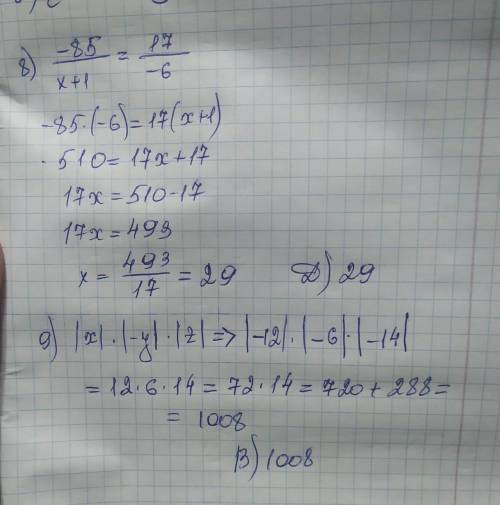 8) -85/x+1 = 17/-6
-85·(-6)=17(x+1)
510=17x+17
17x=510-17
17x=493
x= 493/17 = 29 D) 29
9) |x|·|-y|·|z| => |-12|·|-6|·|-14|
=12·6·14=72·14=720+288=
= 1008
B) 1008